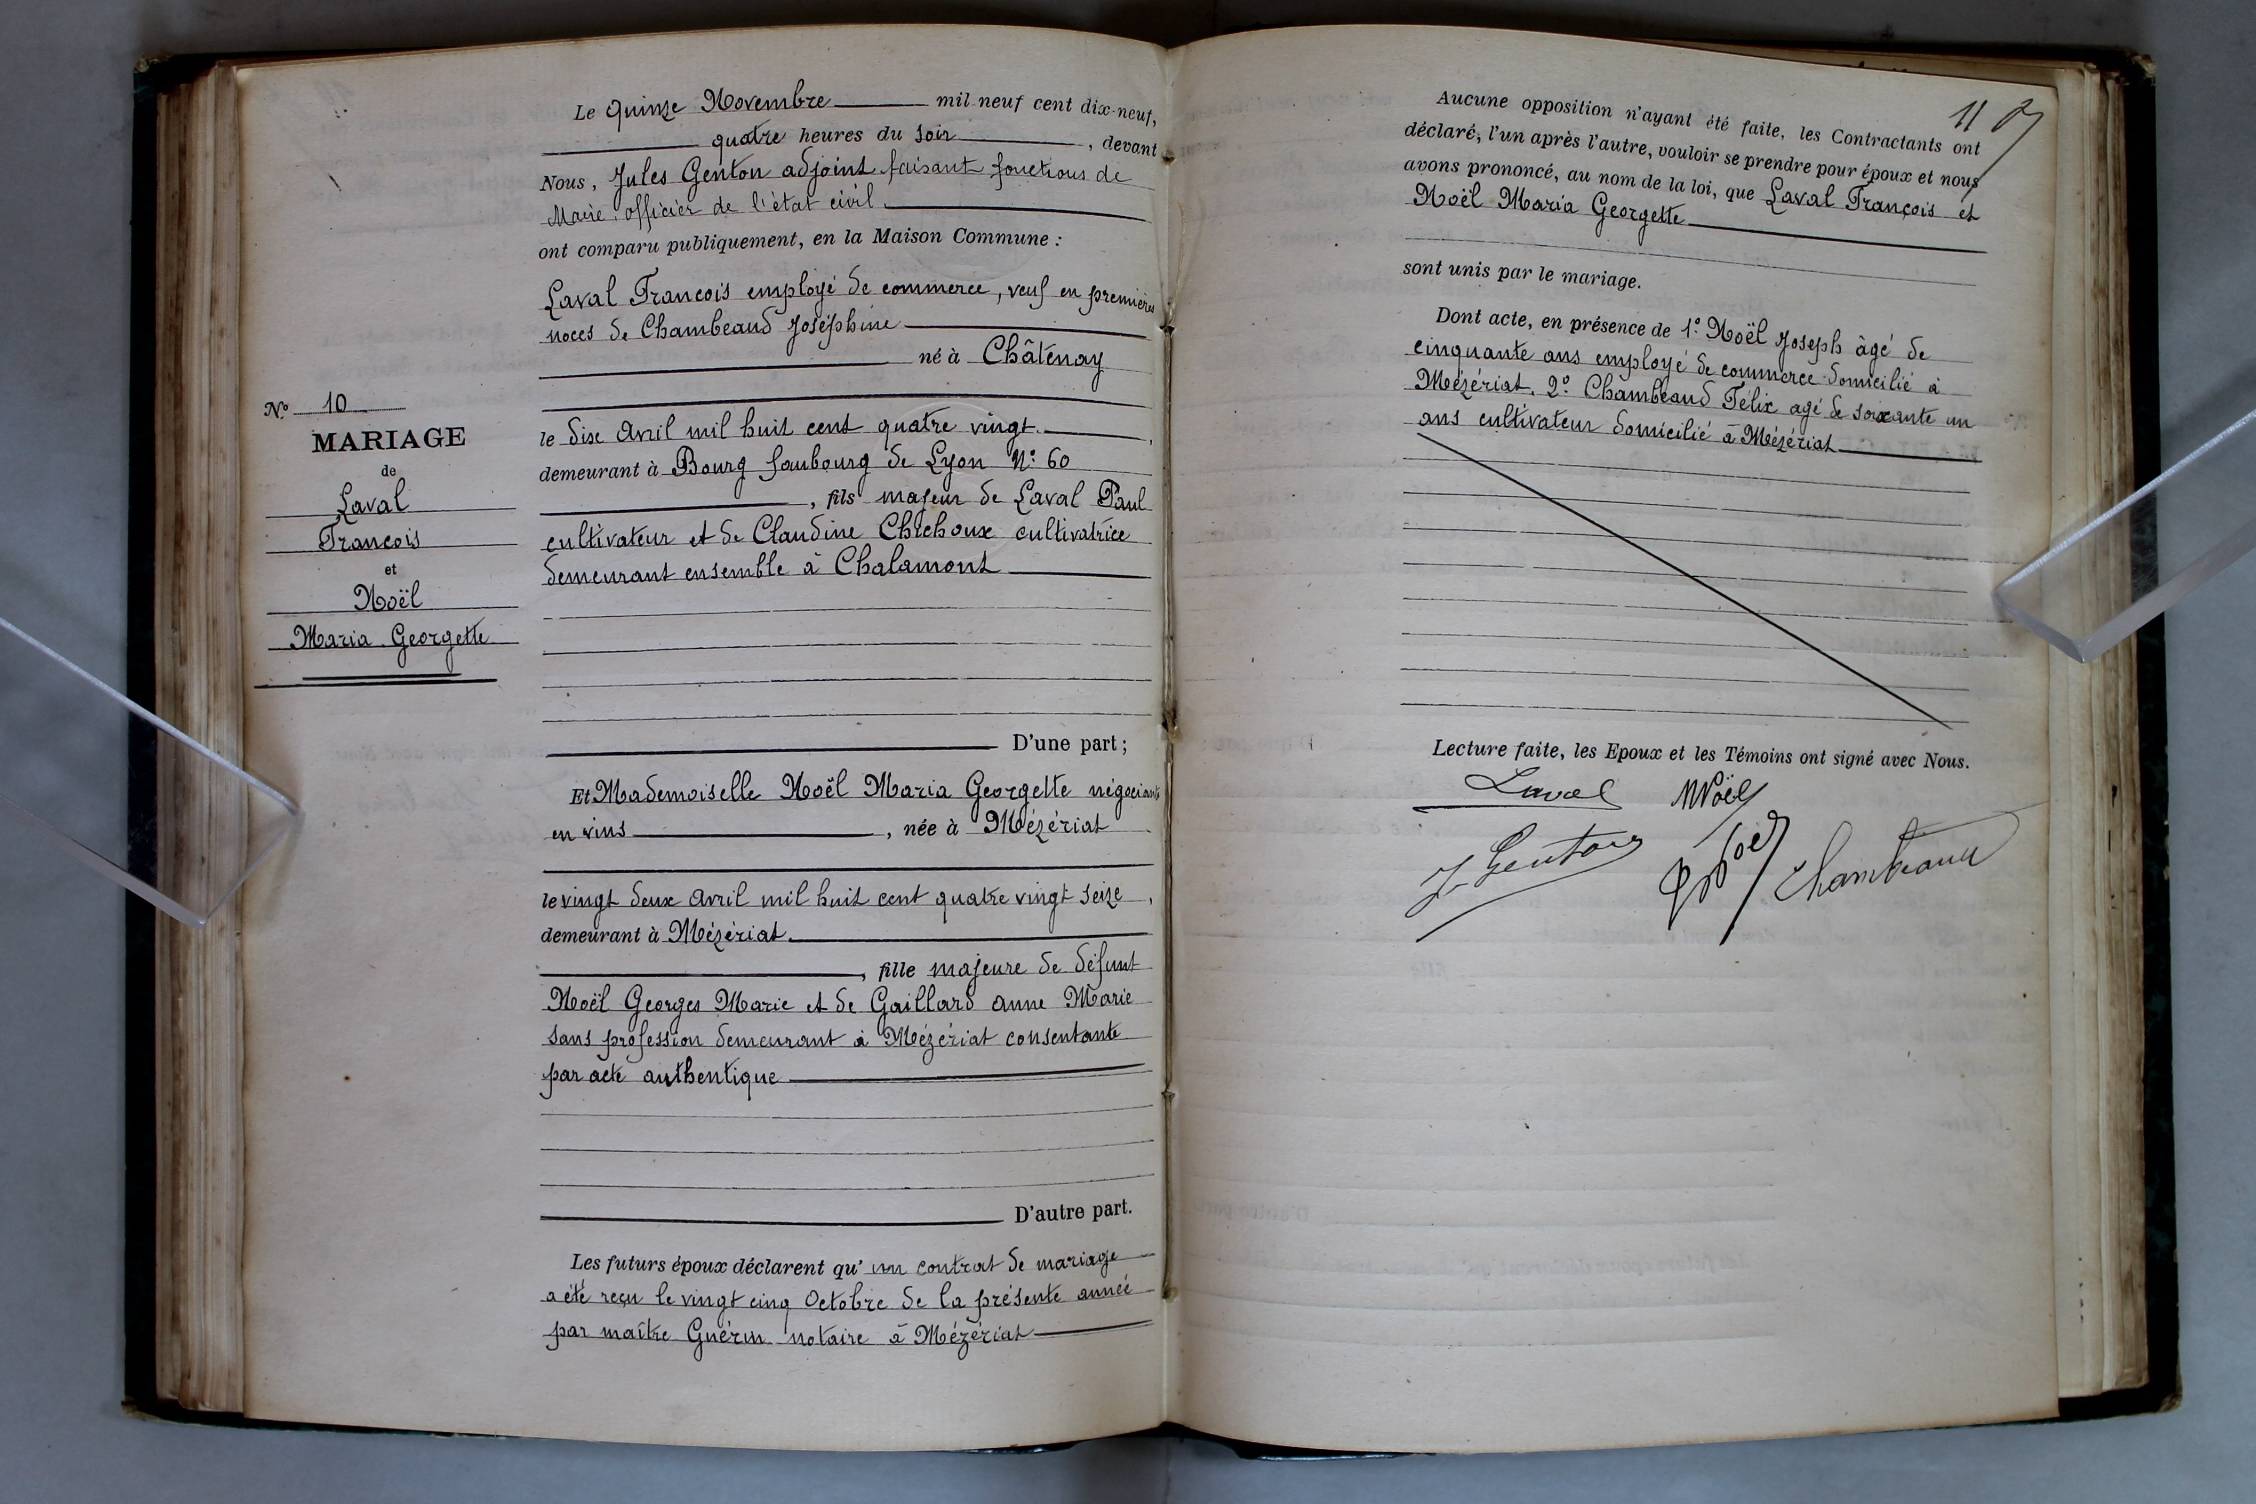 Le quinze Novembre mil neuf cent dix-neuf,
quatre heures du soir, devant
Nous, Jules Genton adjoint faisant fonctions de
Maire, officier de l'état civil.
ont comparu publiquement, en la Maison Commune :
Laval François employé de commerce, veuf en premières
noces de Chambeaud Joséphine
né à Châtenay
le dix Avril mil huit cent quatre vingt.,
demeurant à Bourg faubourg de Lyon N° 60
, fils majeur de Laval Paul
cultivateur et de Claudine Chichoux cultivatrice
demeurant ensemble à Chalamont
N° 10
MARIAGE
de
Laval
François
et
Noël
Maria Georgette
D'une part ;
Et Mademoiselle Noël Maria Georgette négociante
en vins, née à Mézériat
le vingt deux Avril mil huit cent quatre vingt seize,
demeurant à Mézériat.
, fille majeure de défunt
Noël Georges Marie et de Gaillard Anne Marie
sans profession demeurant à Mézériat consentante
par acte authentique
D'autre part.
Les futurs époux déclarent qu'un contrat de mariage
a été reçu le vingt cinq Octobre de la présente année
par maître Guérin notaire à Mézériat
11
Aucune opposition n'ayant été faite, les Contractants ont
déclaré, l'un après l'autre, vouloir se prendre pour époux et nous
avons prononcé, au nom de la loi, que Laval François et
Noël Maria Georgette
sont unis par le mariage.
Dont acte, en présence de 1° Noël Joseph âgé de
cinquante ans employé de commerce domicilié à
Mézériat. 2° Chambeaud Félix agé de soixante un
ans cultivateur domicilié à Mézériat
Lecture faite, les Epoux et les Témoins ont signé avec Nous.
Laval MNoël
J. Genton Noël Chambeaud